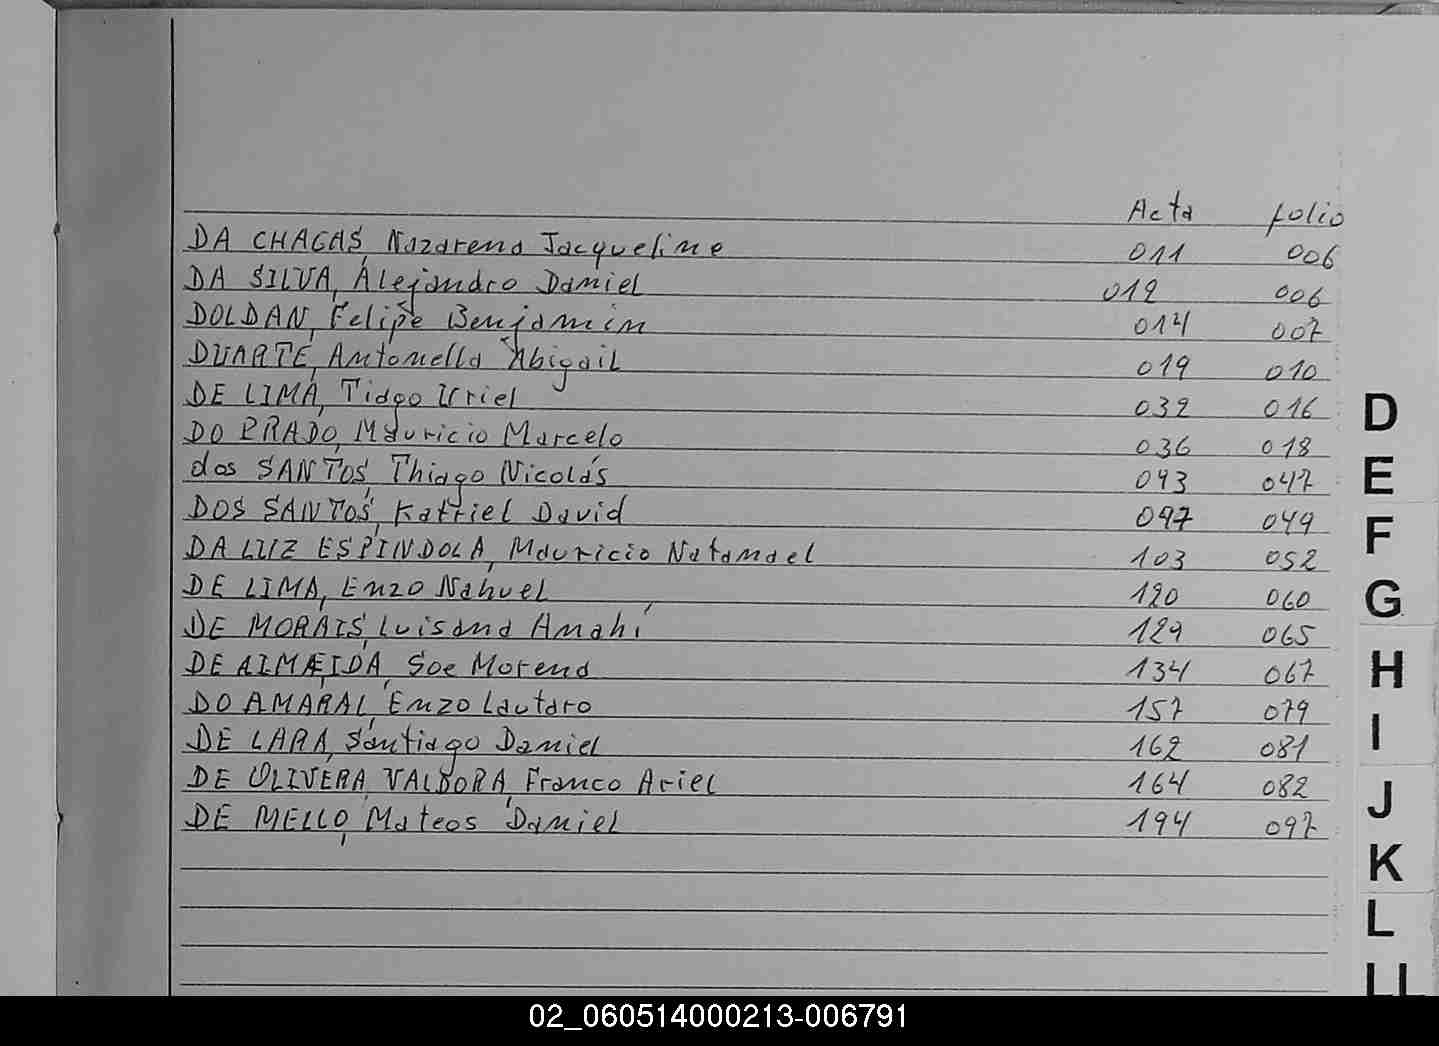 Acta folio
DA CHAGAS, Nazarena Jacqueline 011 006
DA SILVA, Alejandro Daniel 012 006
DOLDAN, Felipe Benjamin 014 007
DUARTE, Antonella Abigail 019 010
DE LIMA, Tiago Uriel 032 016
DO PRADO, Mauricio Marcelo 036 018
dos SANTOS, Thiago Nicolás 093 047
DOS SANTOS, Katriel David 097 049
DA LUZ ESPINDOLA, Mauricio Natanael 103 052
DE LIMA, Enzo Nahuel 120 060
DE MORAIS, Luisana Anahí 129 065
DE ALMEIDA, Soe Morena 134 067
DO AMARAL, Enzo Lautaro 157 079
DE LARA, Santiago Daniel 162 081
DE OLIVERA, Franco Ariel 164 082
DE MELLO, Mateos Daniel 194 097
D
E
F
G
H
I
J
K
L
LL
02_060514000213-006791